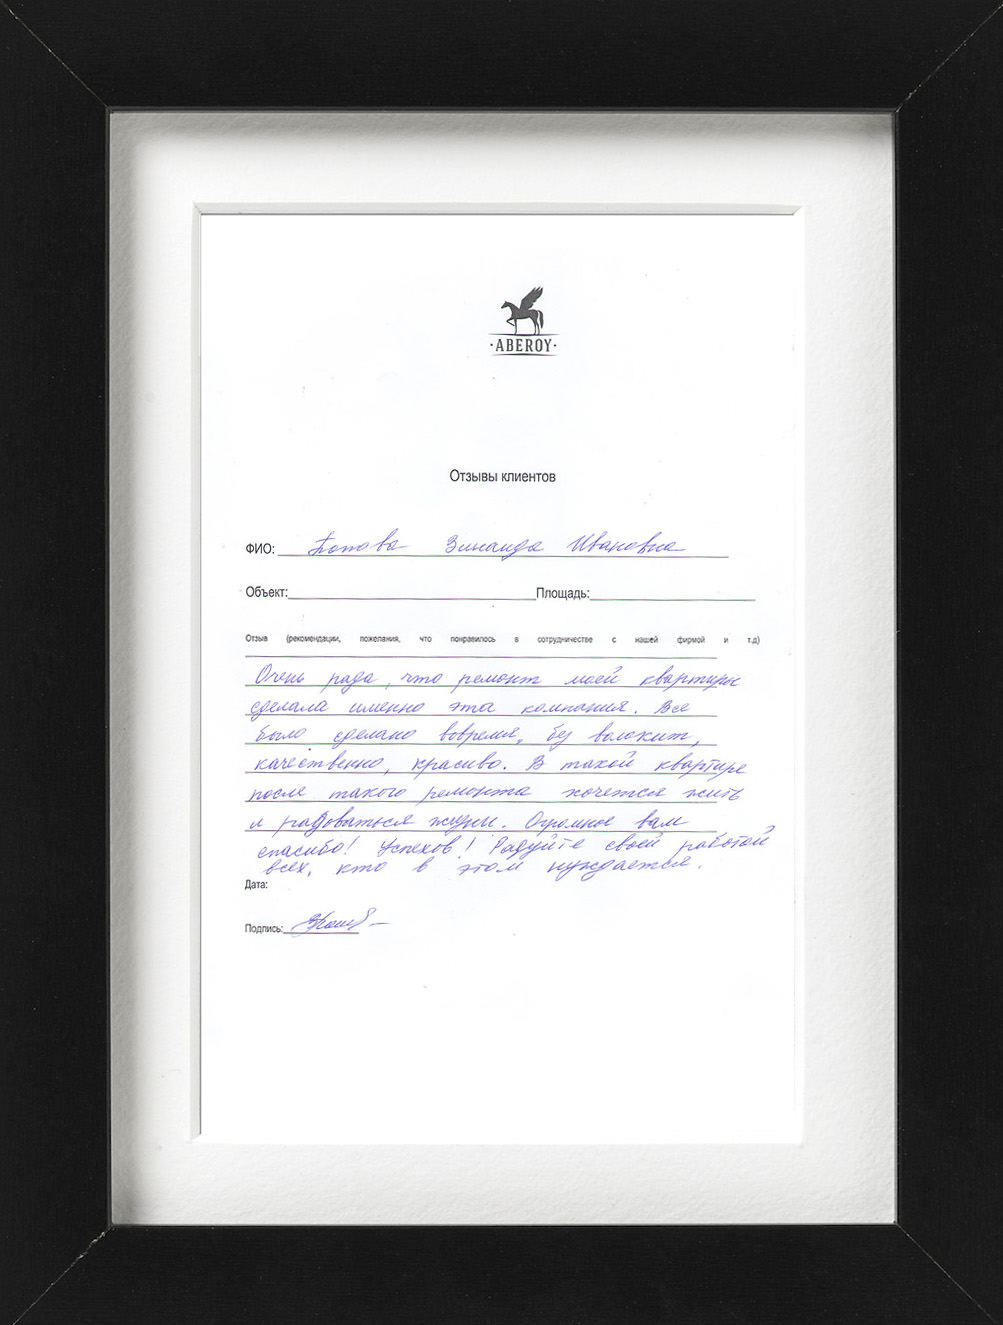 ·ABEROY·
Отзывы клиентов
ФИО: Попова Зинаида Ивановна
Объект: Площадь:
Отзыв (рекомендации, пожелания, что понравилось в сотрудничестве с нашей фирмой и т.д)
Очень рада, что ремонт моей квартиры
сделала именно эта компания. Все
было сделано вовремя, без волокит,
качественно, красиво. В такой квартире
после такого ремонта хочется жить
и радоваться жизни. Огромное вам
спасибо! Успехов! Радуйте своей работой
всех, кто в этом нуждается.
Дата:
Подпись: